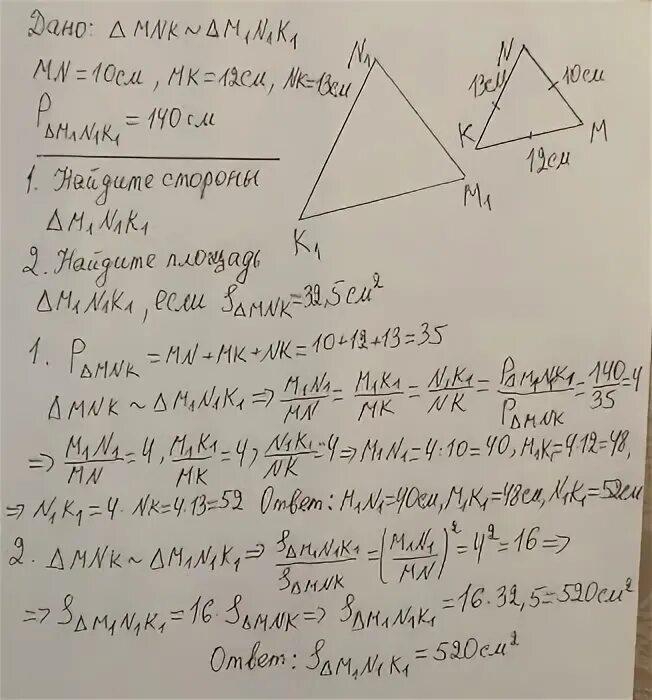 Дано: △MNK ~ △M₁N₁K₁
MN = 10см, MK = 12см, NK = 13см
P△M₁N₁K₁ = 140см
1. Найдите стороны
△M₁N₁K₁
2. Найдите площадь
△M₁N₁K₁, если S△MNK = 32,5см²
N₁
M₁
K₁
N
13см
10см
K
M
12см
1. P△MNK = MN + MK + NK = 10 + 12 + 13 = 35
△MNK ~ △M₁N₁K₁ => M₁N₁/MN = M₁K₁/MK = N₁K₁/NK = P△M₁N₁K₁/P△MNK = 140/35 = 4
=> M₁N₁/MN = 4, M₁K₁/MK = 4, N₁K₁/NK = 4 => M₁N₁ = 4·10 = 40, M₁K = 4·12 = 48,
=> N₁K₁ = 4·NK = 4·13 = 52 Ответ: M₁N₁ = 40см, M₁K₁ = 48см, N₁K₁ = 52см
2. △MNK ~ △M₁N₁K₁ => S△M₁N₁K₁/S△MNK = (M₁N₁/MN)² = 4² = 16 =>
=> S△M₁N₁K₁ = 16·S△MNK => S△M₁N₁K₁ = 16·32,5 = 520см²
Ответ: S△M₁N₁K₁ = 520см²